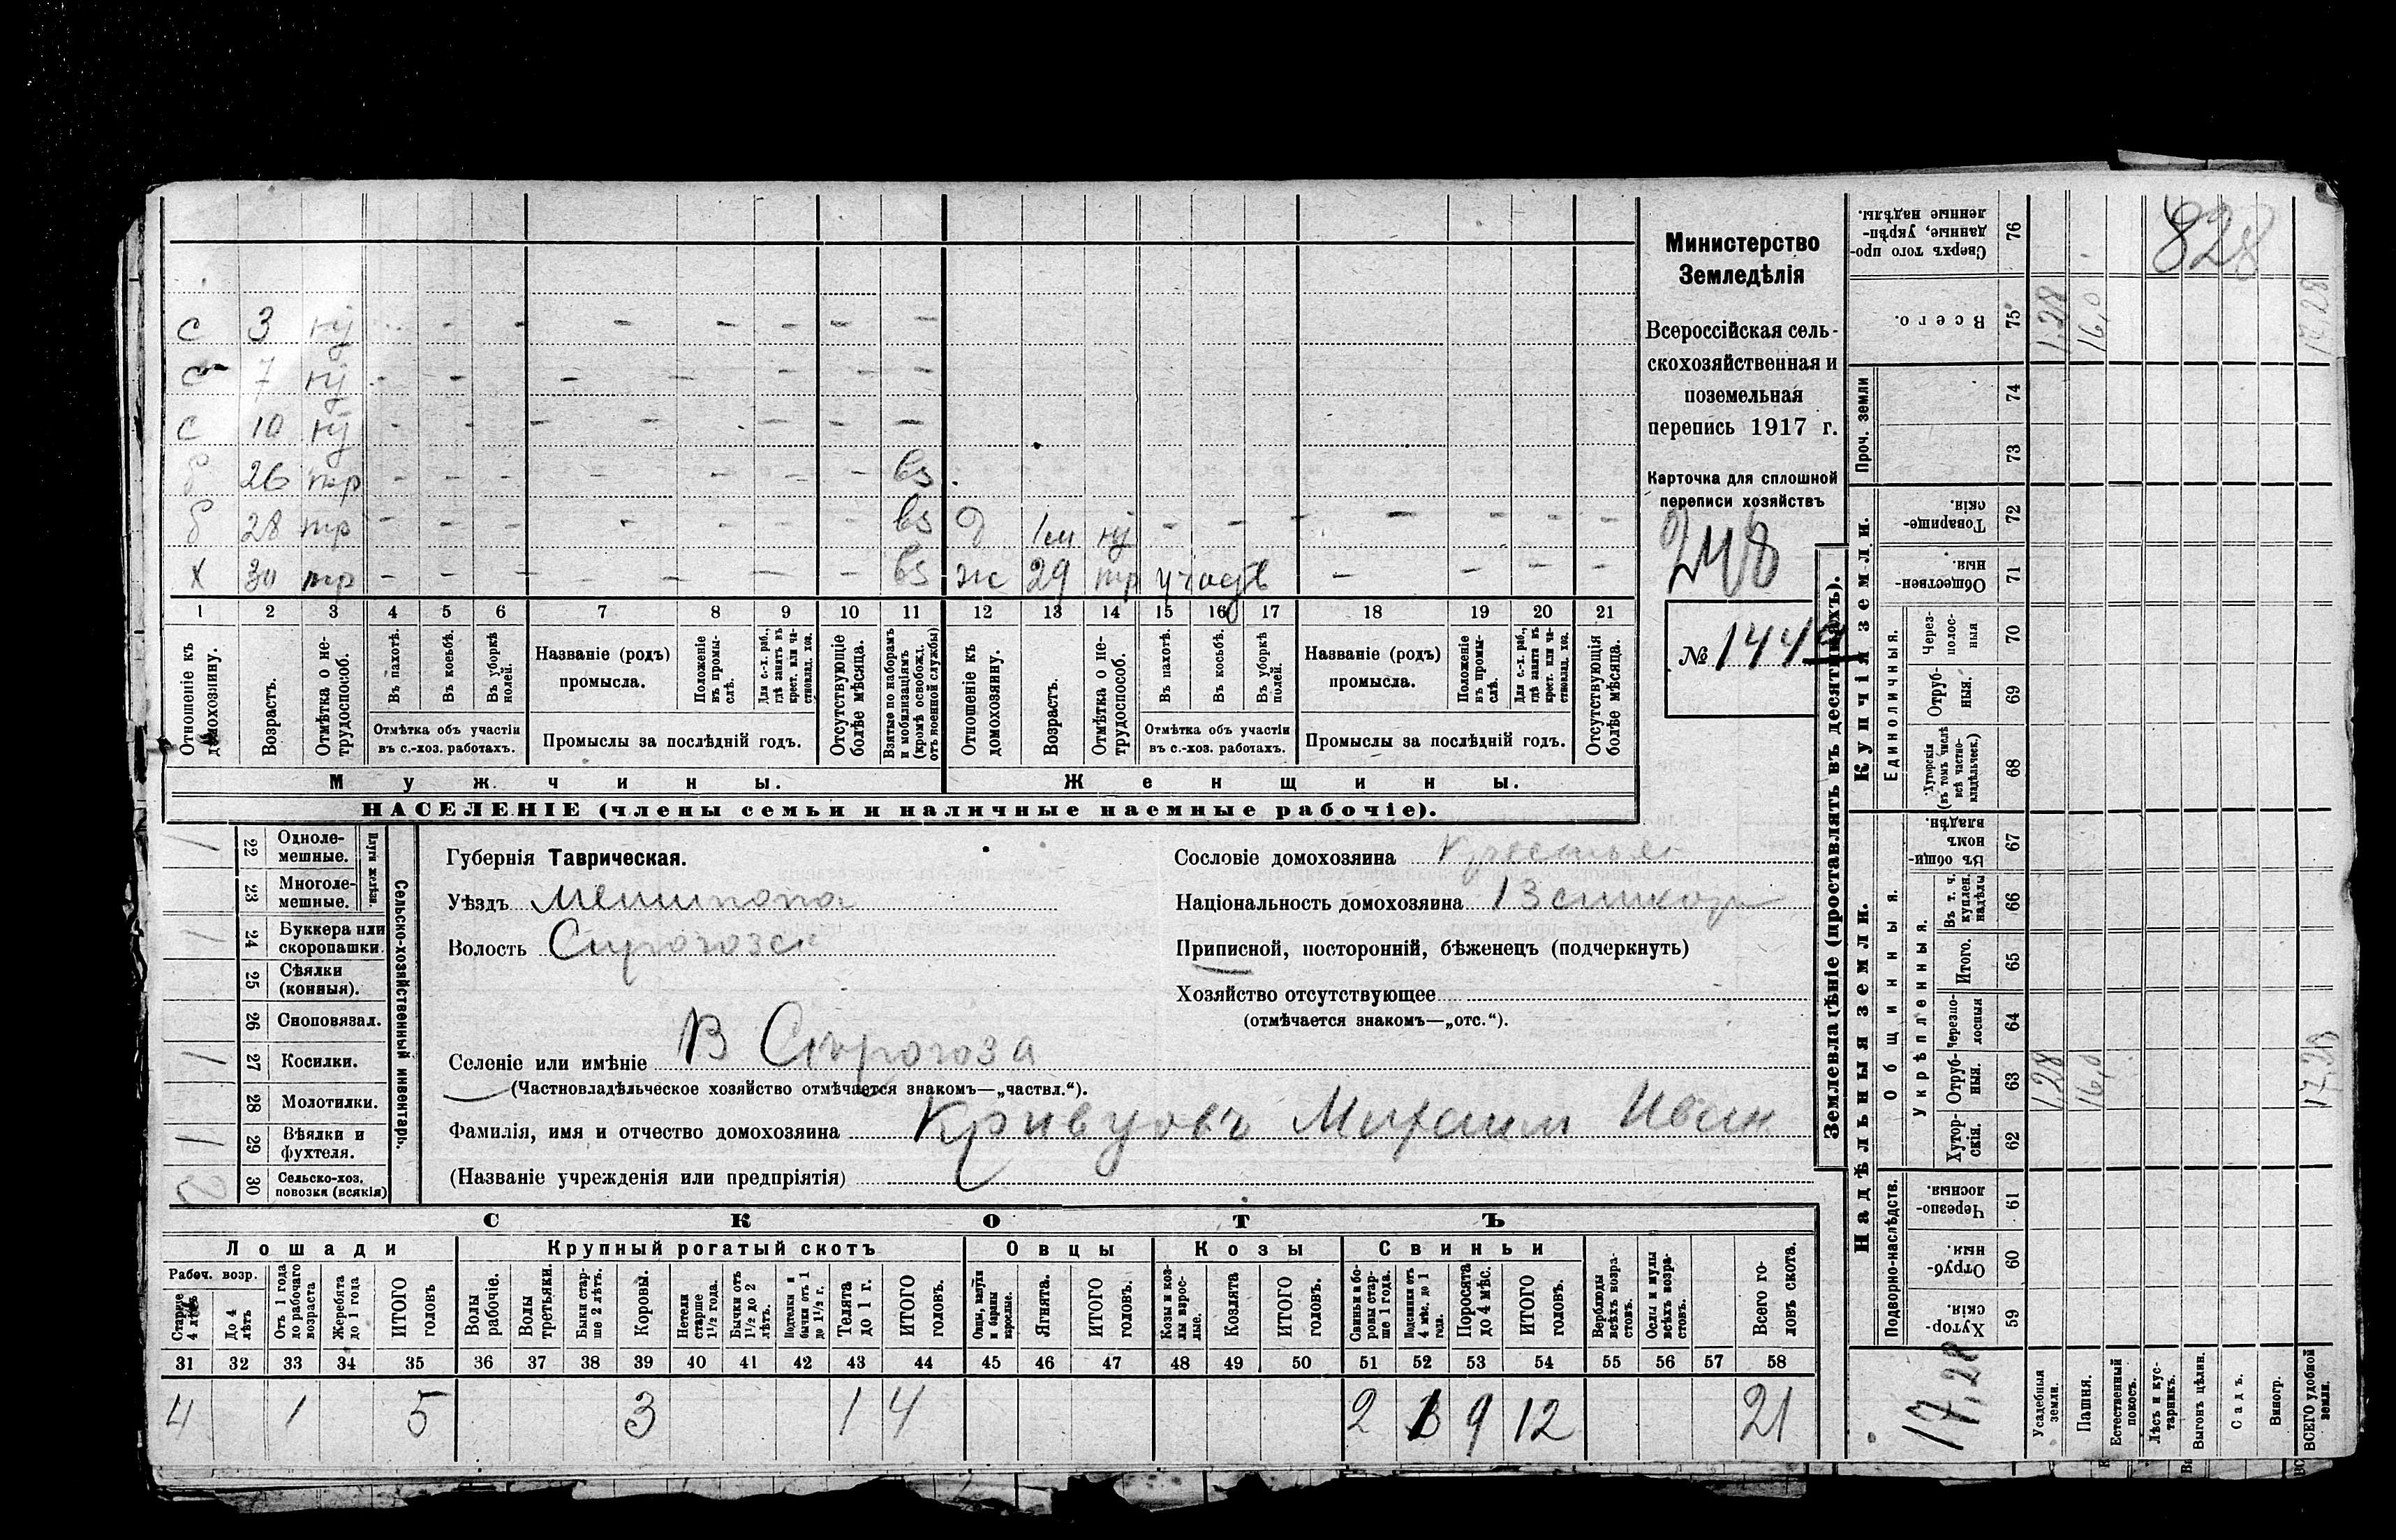 828
Министерство
Земледѣлія
Всероссійская сель-
скохозяйственная и
поземельная
перепись 1917 г.
Карточка для сплошной
переписи хозяйствъ
248
№ 1449
с 3 - - - - - - - -
с 7 - - - - - - - -
с 10 - - - - - - - -
б 26 тр - - - - - - вз
б 28 тр - - - - - - - вз д 1м - - - - - - -
х 30 тр - - - - - - - вз ж 29 тр - - - -
1 2 3 4 5 6 7 8 9 10 11 12 13 14 15 16 17 18 19 20 21
Отношеніе къ домохозяину.
Возрастъ.
Отмѣтка о не-трудоспособ.
Въ пахотѣ.
Въ косьбѣ.
Въ уборкѣ полей.
Отмѣтка объ участіи въ с.-хоз. работахъ.
Названіе (родъ) промысла.
Положеніе въ промы-слѣ.
Для с.-х. раб., гдѣ занятъ въ крест. или ча-ствовлад. хоз.
Промыслы за послѣдній годъ.
Отсутствующіе болѣе мѣсяца.
Взятые по наборамъ и мобилизаціямъ (кромѣ освобожд. отъ военной службы)
Отношеніе къ домохозяину.
Возрастъ.
Отмѣтка о не-трудоспособ.
Въ пахотѣ.
Въ косьбѣ.
Въ уборкѣ полей.
Отмѣтка объ участіи въ с.-хоз. работахъ.
Названіе (родъ) промысла.
Положеніе въ промы-слѣ.
Для с.-х. раб., гдѣ занята въ крест. или ча-ствовлад. хоз.
Промыслы за послѣдній годъ.
Отсутствующія болѣе мѣсяца.
Мужчины. Женщины.
НАСЕЛЕНІЕ (члены семьи и наличные наемные рабочіе).
Сельско-хозяйственный инвентарь.
Плуги желѣзн
1 22 Одноле-мешные.
23 Многоле-мешные.
1 24 Буккера или скоропашки.
25 Сѣялки (конныя).
26 Сноповязал.
1 27 Косилки.
28 Молотилки.
1 29 Вѣялки и фухтеля.
2 30 Сельско-хоз. повозки (всякія)
Губернія Таврическая.
Уѣздъ
Волость
Селеніе или имѣніе В Сѣрогоза
(Частновладѣльческое хозяйство отмѣчается знакомъ—„частвл.“).
Фамилія, имя и отчество домохозяина Кривцовъ Михаил Иван
(Названіе учрежденія или предпріятія)
Сословіе домохозяина
Національность домохозяина
Приписной, посторонній, бѣженецъ (подчеркнуть)
Хозяйство отсутствующее
(отмѣчается знакомъ—„отс.“).
СКОТЪ
Лошади Крупный рогатый скотъ Овцы Козы Свиньи
Рабоч. возр.
Старше 4 лѣтъ
До 4 лѣтъ
Отъ 1 года до рабочаго возраста
Жеребята до 1 года
ИТОГО головъ
Волы рабочіе.
Волы третьяки.
Быки стар-ше 2 лѣтъ.
Коровы.
Нетели старше 1½ года.
Бычки отъ 1½ до 2 лѣтъ.
Подтелки и бычки отъ 1 до 1½ г.
Телята до 1 г.
ИТОГО головъ.
Овцы, валухи и бараны взрослые.
Ягнята.
ИТОГО головъ.
Козы и коз-лы взрос-лые.
Козлята
ИТОГО головъ.
Свиньи и бо-ровы стар-ше 1 года.
Подсвинки отъ 4 мѣс. до 1 года.
Поросята до 4 мѣс.
ИТОГО головъ.
Верблюды всѣхъ возра-стовъ.
Ослы и мулы всѣхъ возра-стовъ.
Всего го-ловъ скота.
31 32 33 34 35 36 37 38 39 40 41 42 43 44 45 46 47 48 49 50 51 52 53 54 55 56 57 58
4 1 5 3 1 4 2 1 9 12 21
Землевладѣніе (проставлять въ десятинахъ).
Надѣльныя земли. Купчія земли.
Подворно-наслѣдств.
Общинныя.
Укрѣпленныя.
Единоличныя.
Проч. земли
Хутор-скія. 59
Отруб-ныя. 60
Черезпо-лосныя. 61
Хутор-скія. 62
Отруб-ныя. 63
Черезпо-лосныя 64
Итого. 65
Въ т. ч. куплен. надѣлы 66
Въ общи-номъ владѣн. 67
Хуторскія (въ томъ числѣ всѣ частно-владѣльческ.) 68
Отруб-ныя. 69
Через-полос-ныя 70
Обществен-ныя. 71
Товарище-скія. 72
73
74
Всего. 75
Сверхъ того про-данные, укрѣп-ленные надѣлы. 76
17,28
Усадебныя земли. 1,28 1,28
Пашня. 16,0 16,0
Естественный покосъ.
Лѣсъ и кус-тарникъ.
Выгонъ цѣлин.
Садъ.
Виногр.
ВСЕГО удобной земли. 17,28 17,28